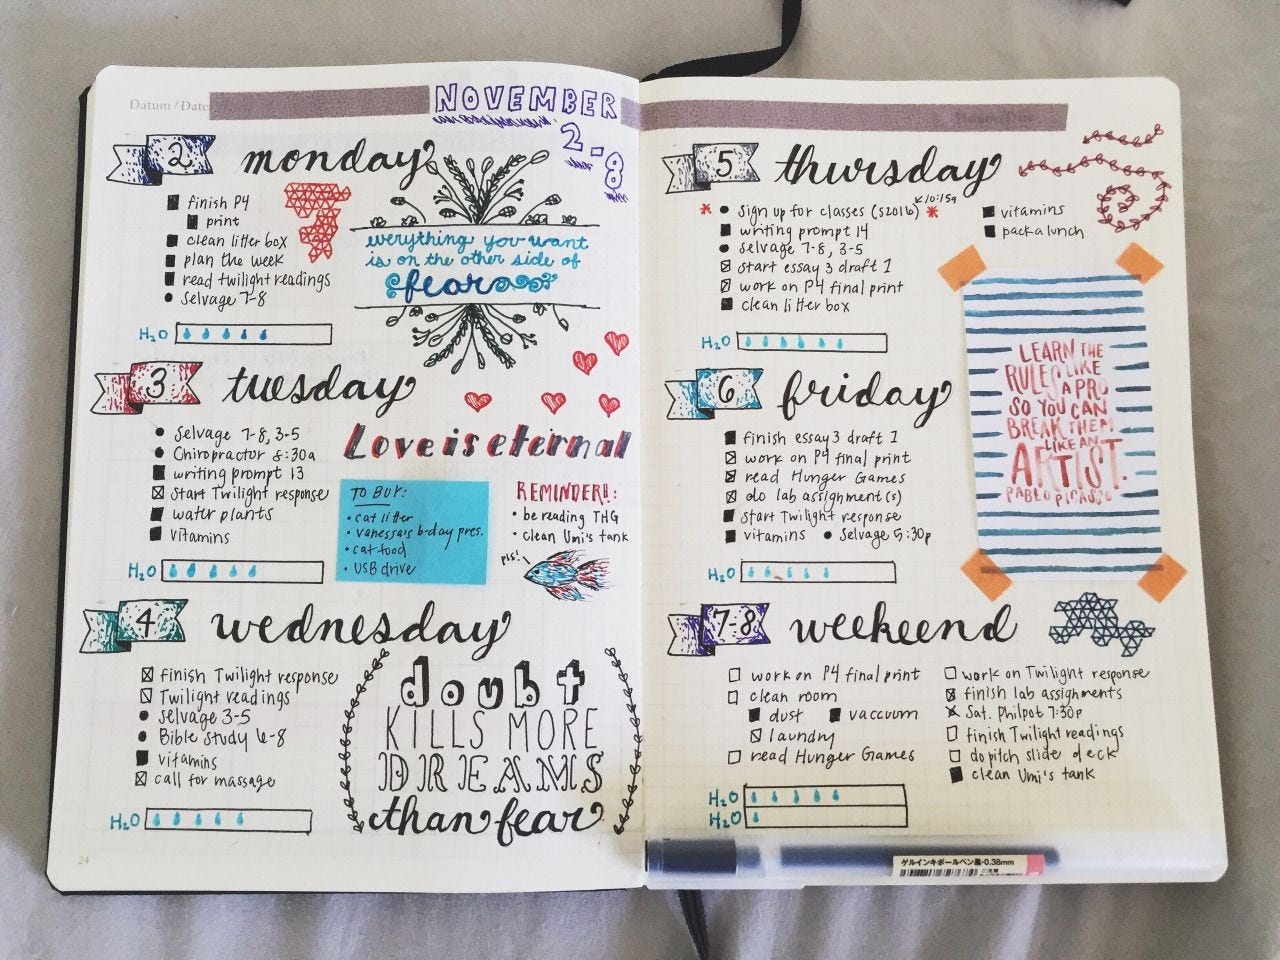 Datum / Date:
NOVEMBER
2-8
2 monday
finish P4
print
clean litter box
plan the week
read twilight readings
Selvage 7-8
H2O
everything you want
is on the other side of
fear
3 tuesday
Selvage 7-8, 3-5
Chiropractor 8:30a
writing prompt 13
Start Twilight response
water plants
vitamins
H2O
Love is eternal
TO BUY:
• cat litter
• vanessa's b-day pres.
• cat food
• USB drive
REMINDER!!:
• be reading THG
• clean Umi's tank
pls!
4 wednesday
finish Twilight response
Twilight readings
Selvage 3-5
Bible Study 6-8
vitamins
call for massage
H2O
doubt
KILLS MORE
DREAMS
than fear
24
5 thursday
* Sign up for classes (S2016) *
writing prompt 14
Selvage 7-8, 3-5
start essay 3 draft 1
work on P4 final print
clean litter box
vitamins
pack a lunch
H2O
LEARN THE
RULES LIKE
A PRO
SO YOU CAN
BREAK THEM
LIKE AN
ARTIST.
PABLO PICASSO
6 friday
finish essay 3 draft 1
work on P4 final print
read Hunger Games
do lab assignment(s)
Start Twilight response
vitamins • Selvage 5:30p
H2O
7-8 weekend
work on P4 final print
clean room
dust vaccuum
laundry
read Hunger Games
work on Twilight response
finish lab assignments
Sat. Philpot 7:30p
finish Twilight readings
do pitch slide deck
clean Umi's tank
H2O
H2O
ゲルインキボールペン黒・0.38mm